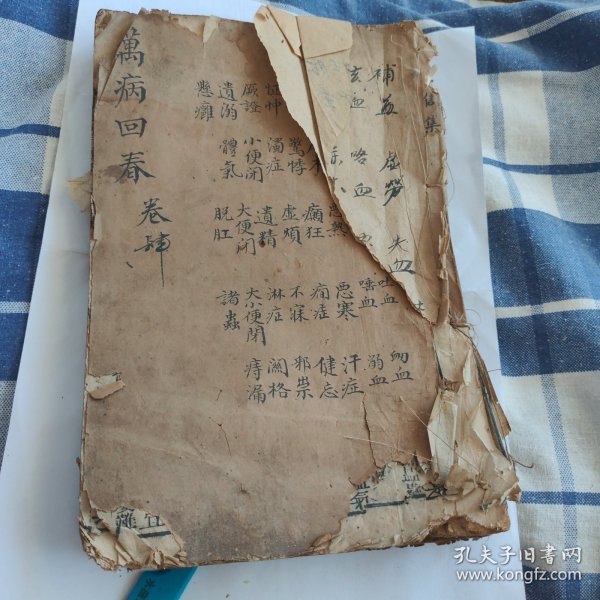 信集
補益 虛勞 失血 吐血 衂血
玄血 咯血 嗑血 溺血
惡熱 惡寒 汗症
癲狂 癇症 健忘
怔忡 驚悸 虛煩 不寐 邪祟
厥證 濁症 遺精 淋症 関格
遺溺 小便閉 大便閉 大小便閉 痔漏
懸癰 體氣 脫肛 諸蟲
萬病回春 卷肆
孔夫子旧书网
www.kongfz.com